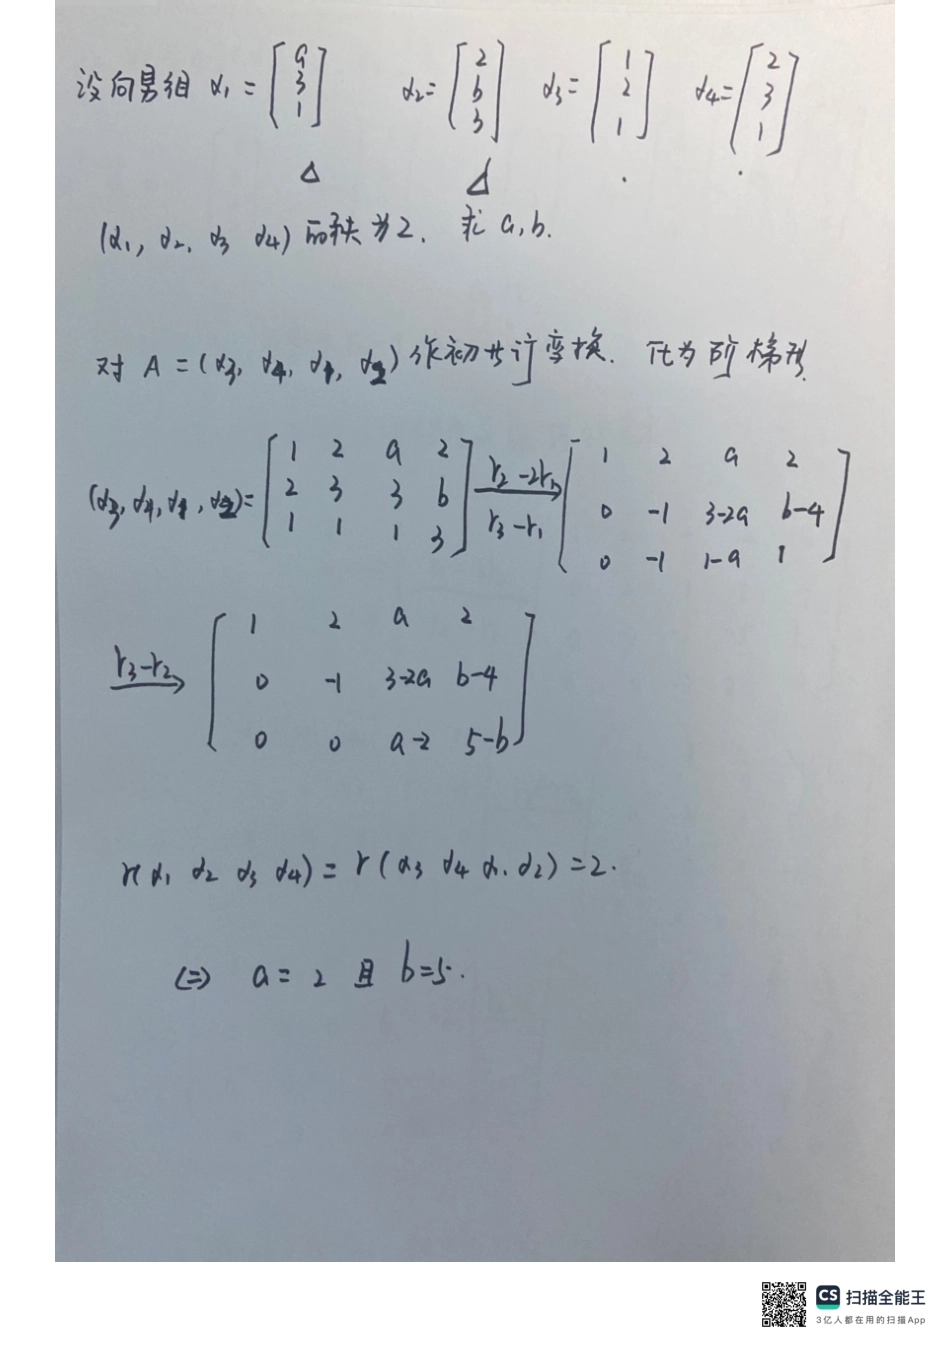 设向量组 α₁ = [a 3 1] α₂= [2 b 3] α₃= [1 2 1] α₄= [2 3 1]
Δ Δ . .
(α₁, α₂, α₃ α₄) 的秩为2. 求 a, b.
对 A = (α₃, α₄, α₁, α₂) 作初等行变换. 化为阶梯形.
(α₃, α₄, α₁, α₂)= [1 2 a 2; 2 3 3 b; 1 1 1 3] r₂-2r₁ r₃-r₁ → [1 2 a 2; 0 -1 3-2a b-4; 0 -1 1-a 1]
r₃-r₂ → [1 2 a 2; 0 -1 3-2a b-4; 0 0 a-2 5-b]
r(α₁ α₂ α₃ α₄) = r(α₃ α₄ α₁ α₂) = 2.
⇔ a = 2 且 b=5.
CS 扫描全能王
3亿人都在用的扫描App